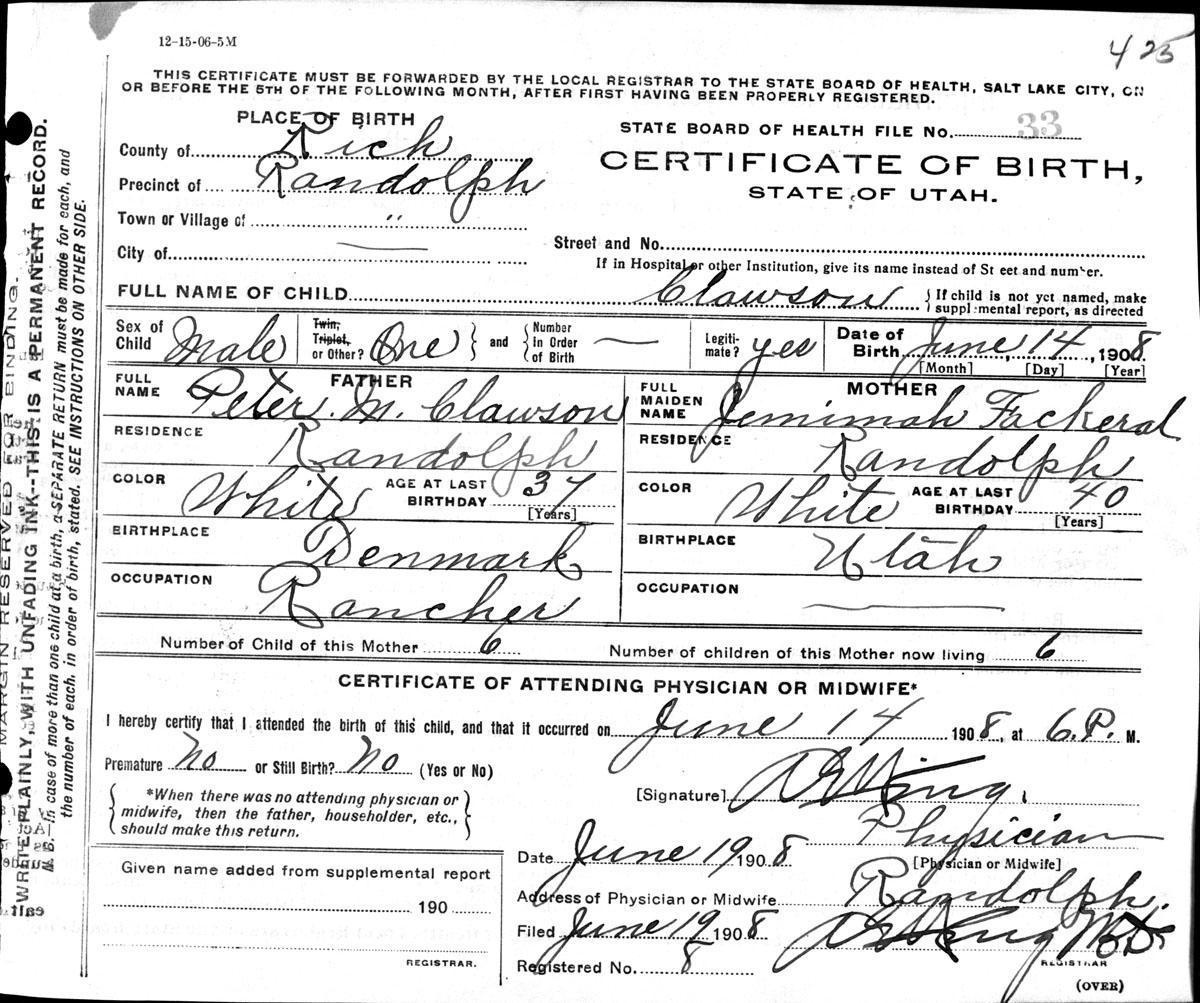 12-15-06-5M
425
THIS CERTIFICATE MUST BE FORWARDED BY THE LOCAL REGISTRAR TO THE STATE BOARD OF HEALTH, SALT LAKE CITY, ON
OR BEFORE THE 5TH OF THE FOLLOWING MONTH, AFTER FIRST HAVING BEEN PROPERLY REGISTERED.
PLACE OF BIRTH
County of Rich
Precinct of Randolph
Town or Village of "
City of —
STATE BOARD OF HEALTH FILE No. 33
CERTIFICATE OF BIRTH,
STATE OF UTAH.
Street and No.
If in Hospital or other Institution, give its name instead of St eet and number.
FULL NAME OF CHILD Clawson { If child is not yet named, make
supplemental report, as directed
Sex of Child Male
Twin, Triplet, or Other? One } and { Number in Order of Birth —
Legiti-mate? yes
Date of Birth June 14, 1908
[Month] [Day] [Year]
FATHER
FULL NAME Peter M. Clawson
RESIDENCE Randolph
COLOR White AGE AT LAST BIRTHDAY 37
[Years]
BIRTHPLACE Denmark
OCCUPATION Rancher
MOTHER
FULL MAIDEN NAME Jemimah Fackeral
RESIDENCE Randolph
COLOR White AGE AT LAST BIRTHDAY 40
[Years]
BIRTHPLACE Utah
OCCUPATION —
Number of Child of this Mother 6 Number of children of this Mother now living 6
CERTIFICATE OF ATTENDING PHYSICIAN OR MIDWIFE*
I hereby certify that I attended the birth of this child, and that it occurred on June 14 1908, at 6.P. M.
Premature No or Still Birth? No (Yes or No)
{ *When there was no attending physician or
midwife, then the father, householder, etc.,
should make this return. }
[Signature]
Physician
[Physician or Midwife]
Date June 19 1908
Address of Physician or Midwife Randolph.
Filed June 19 1908
REGISTRAR
Registered No. 8
(OVER)
Given name added from supplemental report
190
REGISTRAR.
MARGIN RESERVED FOR BINDING.
WRITE PLAINLY, WITH UNFADING INK--THIS IS A PERMANENT RECORD.
N. B. In case of more than one child at a birth, a SEPARATE RETURN must be made for each, and
the number of each, in order of birth, stated. SEE INSTRUCTIONS ON OTHER SIDE.